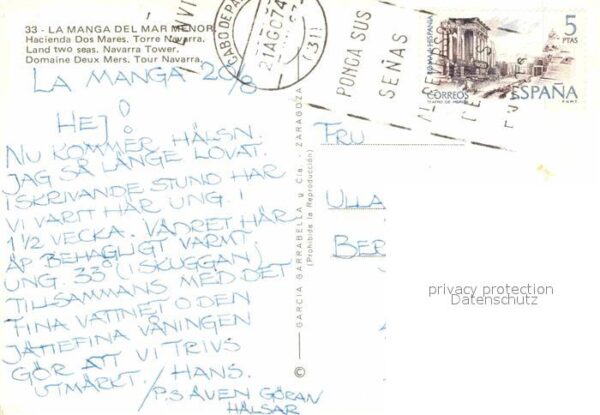 33 - LA MANGA DEL MAR MENOR
Hacienda Dos Mares. Torre Navarra.
Land two seas. Navarra Tower.
Domaine Deux Mers. Tour Navarra.
LA MANGA 20/8
HEJ!
NU KOMMER HÄLSN.
JAG SÅ LÄNGE LOVAT.
I SKRIVANDE STUND HAR
VI VARIT HÄR UNG. I
1 1/2 VECKA. VÄDRET HÄR
ÄR BEHAGLIGT VARMT.
UNG. 33° (I SKUGGAN)
TILLSAMMANS MED DET
FINA VATTNET O DEN
JÄTTEFINA VÅNINGEN
GÖR ATT VI TRIVS
UTMÄRKT. / HANS.
/ P.S ÄVEN GÖRAN
HÄLSAR
GARCIA GARRABELLA y Cía. - ZARAGOZA
(Prohibida la Reproducción)
©
CABO DE PA
21 AGO 74
(31)
PONGA SUS
SEÑAS
5
PTAS
ROMA + HISPANIA
CORREOS
TEATRO DE MERIDA
ESPAÑA
F.N.M.T.
FRU
ULLA
BER
privacy protection
Datenschutz